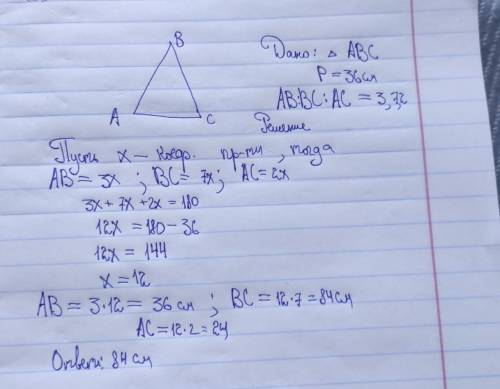 B
A
C
Дано: △ ABC
P = 36см
AB:BC:AC = 3,7,2
Решение
Пусть x – коэф. пр-ти, тогда
AB = 3x ; BC = 7x; AC = 2x
3x + 7x + 2x = 180
12x = 180 - 36
12x = 144
x = 12
AB = 3·12 = 36 см ; BC = 12·7 = 84см
AC = 12·2 = 24
Ответ: 84 см